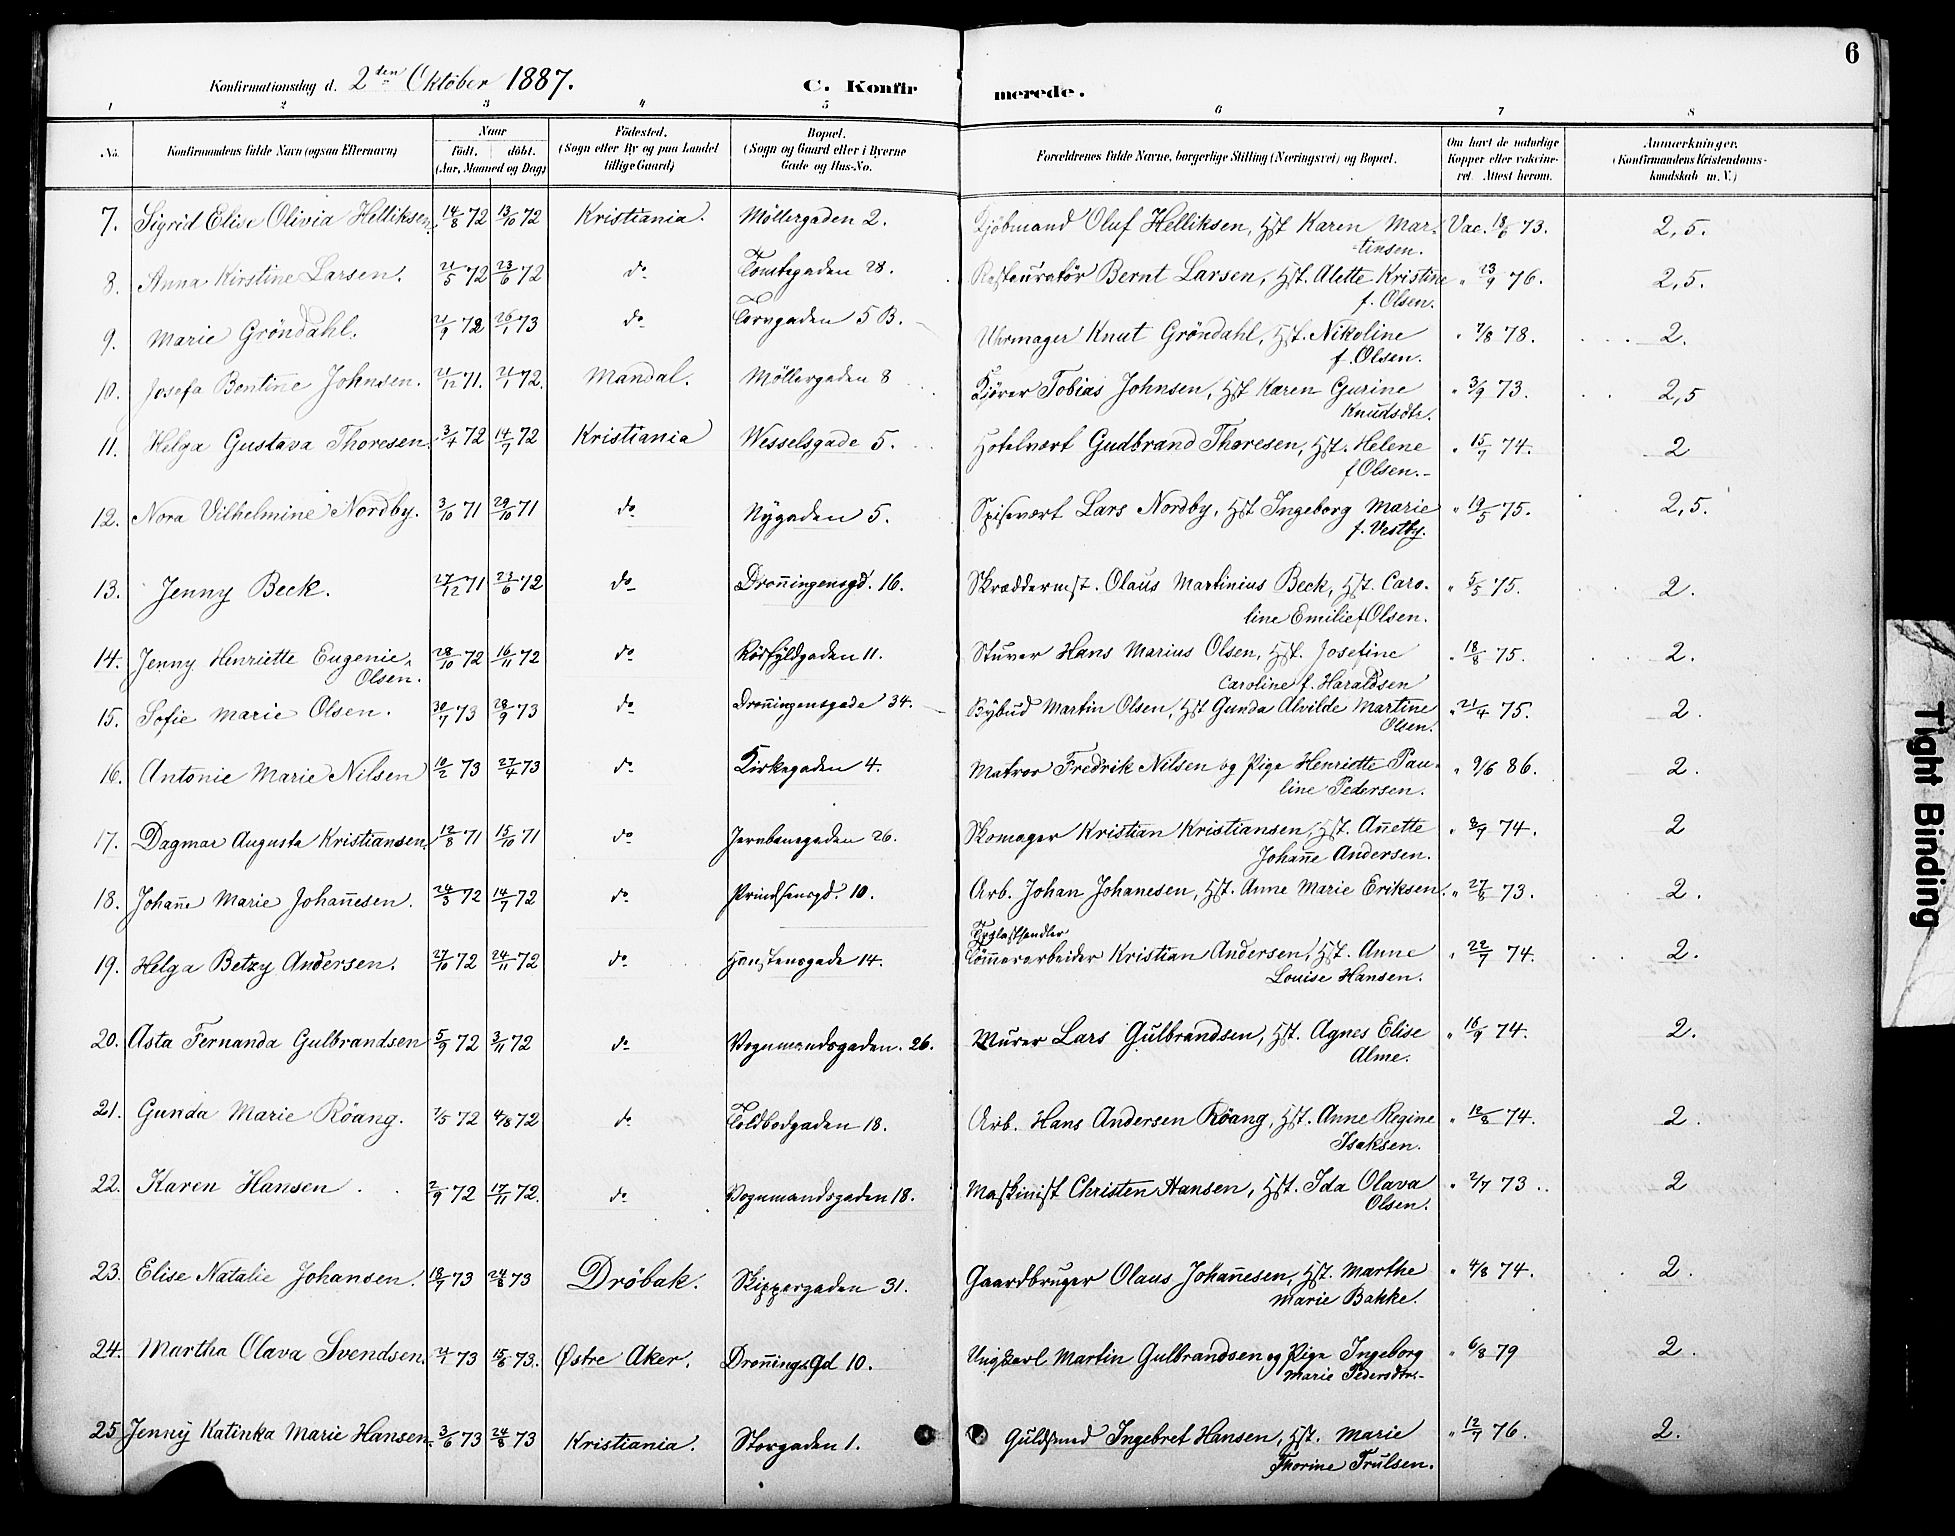 6
Konfirmationsdag d. 2den Oktober 1887. C. Konfirmerede.
1 2 3 4 5 6 7 8
No. Konfirmandens fulde Navn (ogsaa Efternavn) Naar født. døbt. (Aar, Maaned og Dag) Fødested. (Sogn eller By og paa Landet tillige Gaard) Bopæl. (Sogn og Gaard eller i Byerne Gade og Hus-No. Forældrenes fulde Navne, borgerlige Stilling (Næringsvei) og Bopæl. Om havt de naturlige Kopper eller vakcineret. Attest herom. Anmærkninger. (Konfirmandens Kristendomskundskab m. V.)
7. Sigrid Elise Olivia Helliksen. 14/8 72 13/10 72 Kristiania. Möllergaden 2. Kjöbmand Oluf Helliksen, Hst Karen Martinsen. Vac. 18/6 73. 2,5.
8. Anna Kirstine Larsen. 21/5 72 23/6 72 do Tomtegaden 28. Restauratör Bernt Larsen, Hst. Alette Kristine f. Olsen. " 23/9 76. 2,5.
9. Marie Gröndahl. 21/9 72 26/1 73 do Torvgaden 5 B. Uhrmager Knut Gröndahl, Hst. Nikoline f. Olsen. " 7/8 78. 2.
10. Josefa Bentine Johnsen. 21/12 71. 21/1 72. Mandal. Möllergaden 8 Kjörer Tobias Johnsen, Hst Karen Gurine Knudsdtr. " 3/9 73. 2,5
11. Helga Gustava Thoresen. 3/4 72 14/7 72 Kristiania Wesselsgade 5. Hotelvært Gudbrand Thoresen, Hst. Helene f Olsen. " 15/7 74. 2
12. Nora Vilhelmine Nordby. 3/10 71 29/10 71 do Nygaden 5. Spisevært Lars Nordby, Hst Ingeborg Marie f. Vestby. " 19/5 75. 2,5.
13. Jenny Beck. 27/12 71 23/6 72 do Dronningensgd. 16. Skræddermst. Olaus Martinius Beck, Hst. Caroline Emilie f Olsen. " 5/5 75. 2.
14. Jenny Henriette Eugenie Olsen. 28/10 72 16/11 72 do Rörfyldgaden 11. Stuver Hans Marius Olsen, Hst. Josefine Caroline f. Haraldsen " 18/8 75. 2.
15. Sofie Marie Olsen. 30/7 73 28/9 73 do Dronningensgade 34. Bybud Martin Olsen, Hst Gunda Alvilde Martine Olsen. " 21/4 75. 2.
16. Antonie Marie Nilsen 10/2 73 27/4 73 do Kirkegaden 4. Matros Fredrik Nilsen og Pige Henriette Pauline Pedersen. " 9/6 86. 2.
17. Dagmar Augusta Kristiansen. 19/8 71 15/10 71 do Jernbanegaden 26. Skomager Kristian Kristiansen, Hst. Anette Johanne Andersen. 74. 2
18. Johanne Marie Johannesen. 24/3 72 14/7 72 do Prindsensgd. 10. Arb. Johan Johanesen, Hst. Anne Marie Eriksen. " 27/8 73. 2.
19. Helga Betzy Andersen. 27/10 72 24/11 72 do Haustensgade 14. Tömmerarbeider Kristian Andersen, Hst. Anne Louise Hansen. " 22/7 74. 2.
20. Asta Fernanda Gulbrandsen 5/9 72 3/11 72 do Vognmandsgaden. 26. Murer Lars Gulbrandsen, Hst. Agnes Elise Alme. " 16/9 74. 2.
21. Gunda Marie Röang. 7/5 72 4/8 72 do Toldbodgaden 18. Arb. Hans Andersen Röang, Hst. Anne Regine Isaksen. " 19/8 74. 2.
22. Karen Hansen 2/9 72 17/11 72. do Vognmandsgaden 18. Maskinist Christen Hansen, Hst. Ida Olava Olsen. " 2/7 73. 2
23. Elise Natalie Johansen. 18/7 73 24/8 73 Dröbak. Skippergaden 31. Gaardbruger Olaus Johannesen, Hst. Marthe Marie Bakke. " 4/8 74. 2.
24. Martha Olava Svendsen. 21/1 73 15/6 73. Østre Aker. Dronnings Gd 10. Ungkarl Martin Gulbrandsen og Pige Ingeborg Marie Pedersdtr. " 6/8 79 2.
25. Jenny Katinka Marie Hansen. 3/6 73 24/8 73 Kristiania. Storgaden 1. Guldsmed Ingebret Hansen, Hst. Marie Thorine Trulsen. " 12/7 76. 2.
Tight Binding